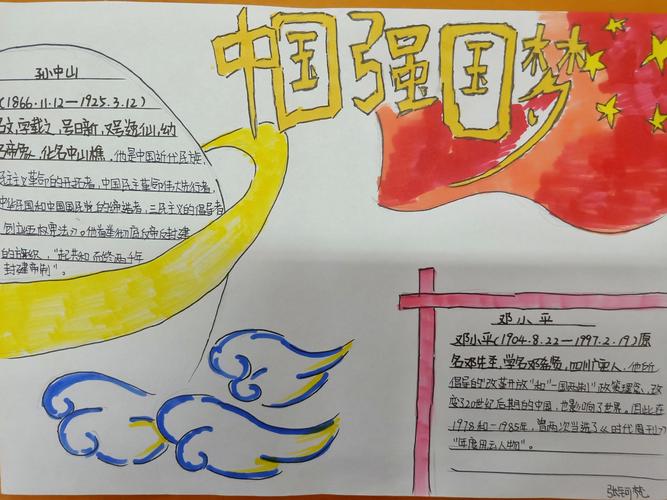 中国强国梦
孙中山
(1866.11.12—1925.3.12)
名文,字载之,号日新,又号逸仙,幼
名帝象,化名中山樵,他是中国近代民族
民主主义革命的开拓者,中国民主革命伟大先行者,
中华民国和中国国民党的缔造者,三民主义的倡导者
创立《五权宪法》。他首举彻底反帝反封建
的旗帜,"起共和而终两千年
封建帝制"。
邓小平
邓小平(1904.8.22—1997.2.19)原
名邓先圣,学名邓希贤,四川广安人,他所
倡导的"改革开放"和"一国两制"政策理念,改
变了20世纪后期的中国,也影响了世界。因此在
1978和一1985年,曾两次当选了《时代周刊》
"年度风云人物"。